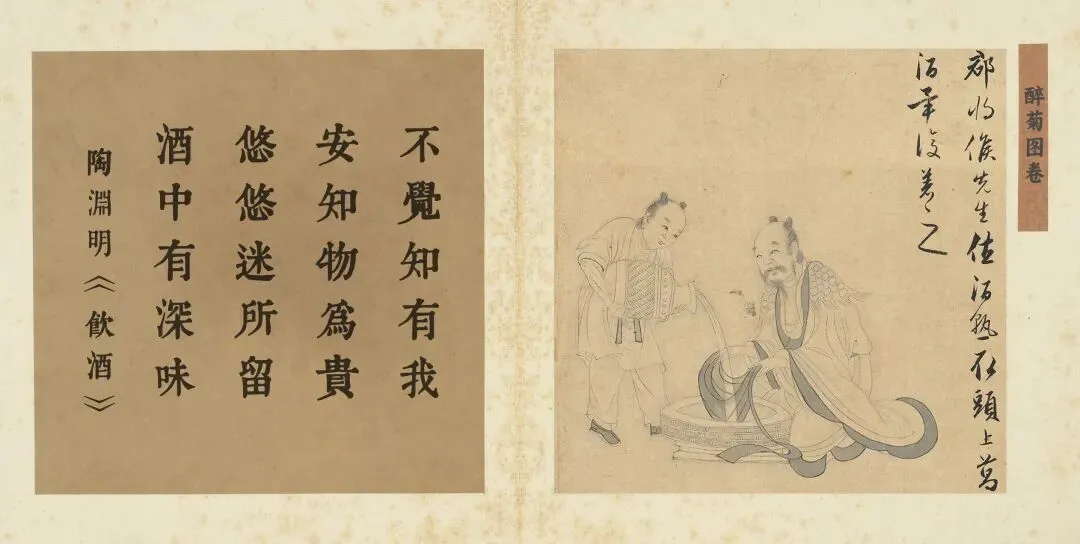 醉菊图卷
郡将候先生值酒熟取頭上葛
酒畢復著之
不覺知有我
安知物爲貴
悠悠迷所留
酒中有深味
陶淵明《飲酒》